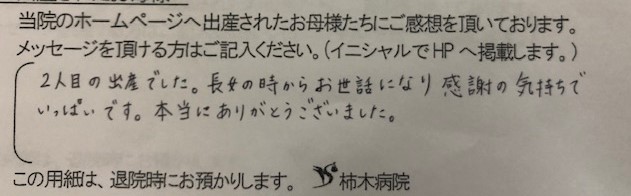 当院のホームページへ出産されたお母様たちにご感想を頂いております。
メッセージを頂ける方はご記入ください。（イニシャルでHPへ掲載します。）
2人目の出産でした。長女の時からお世話になり感謝の気持ちで
いっぱいです。本当にありがとうございました。
この用紙は、退院時にお預かりします。 柿木病院